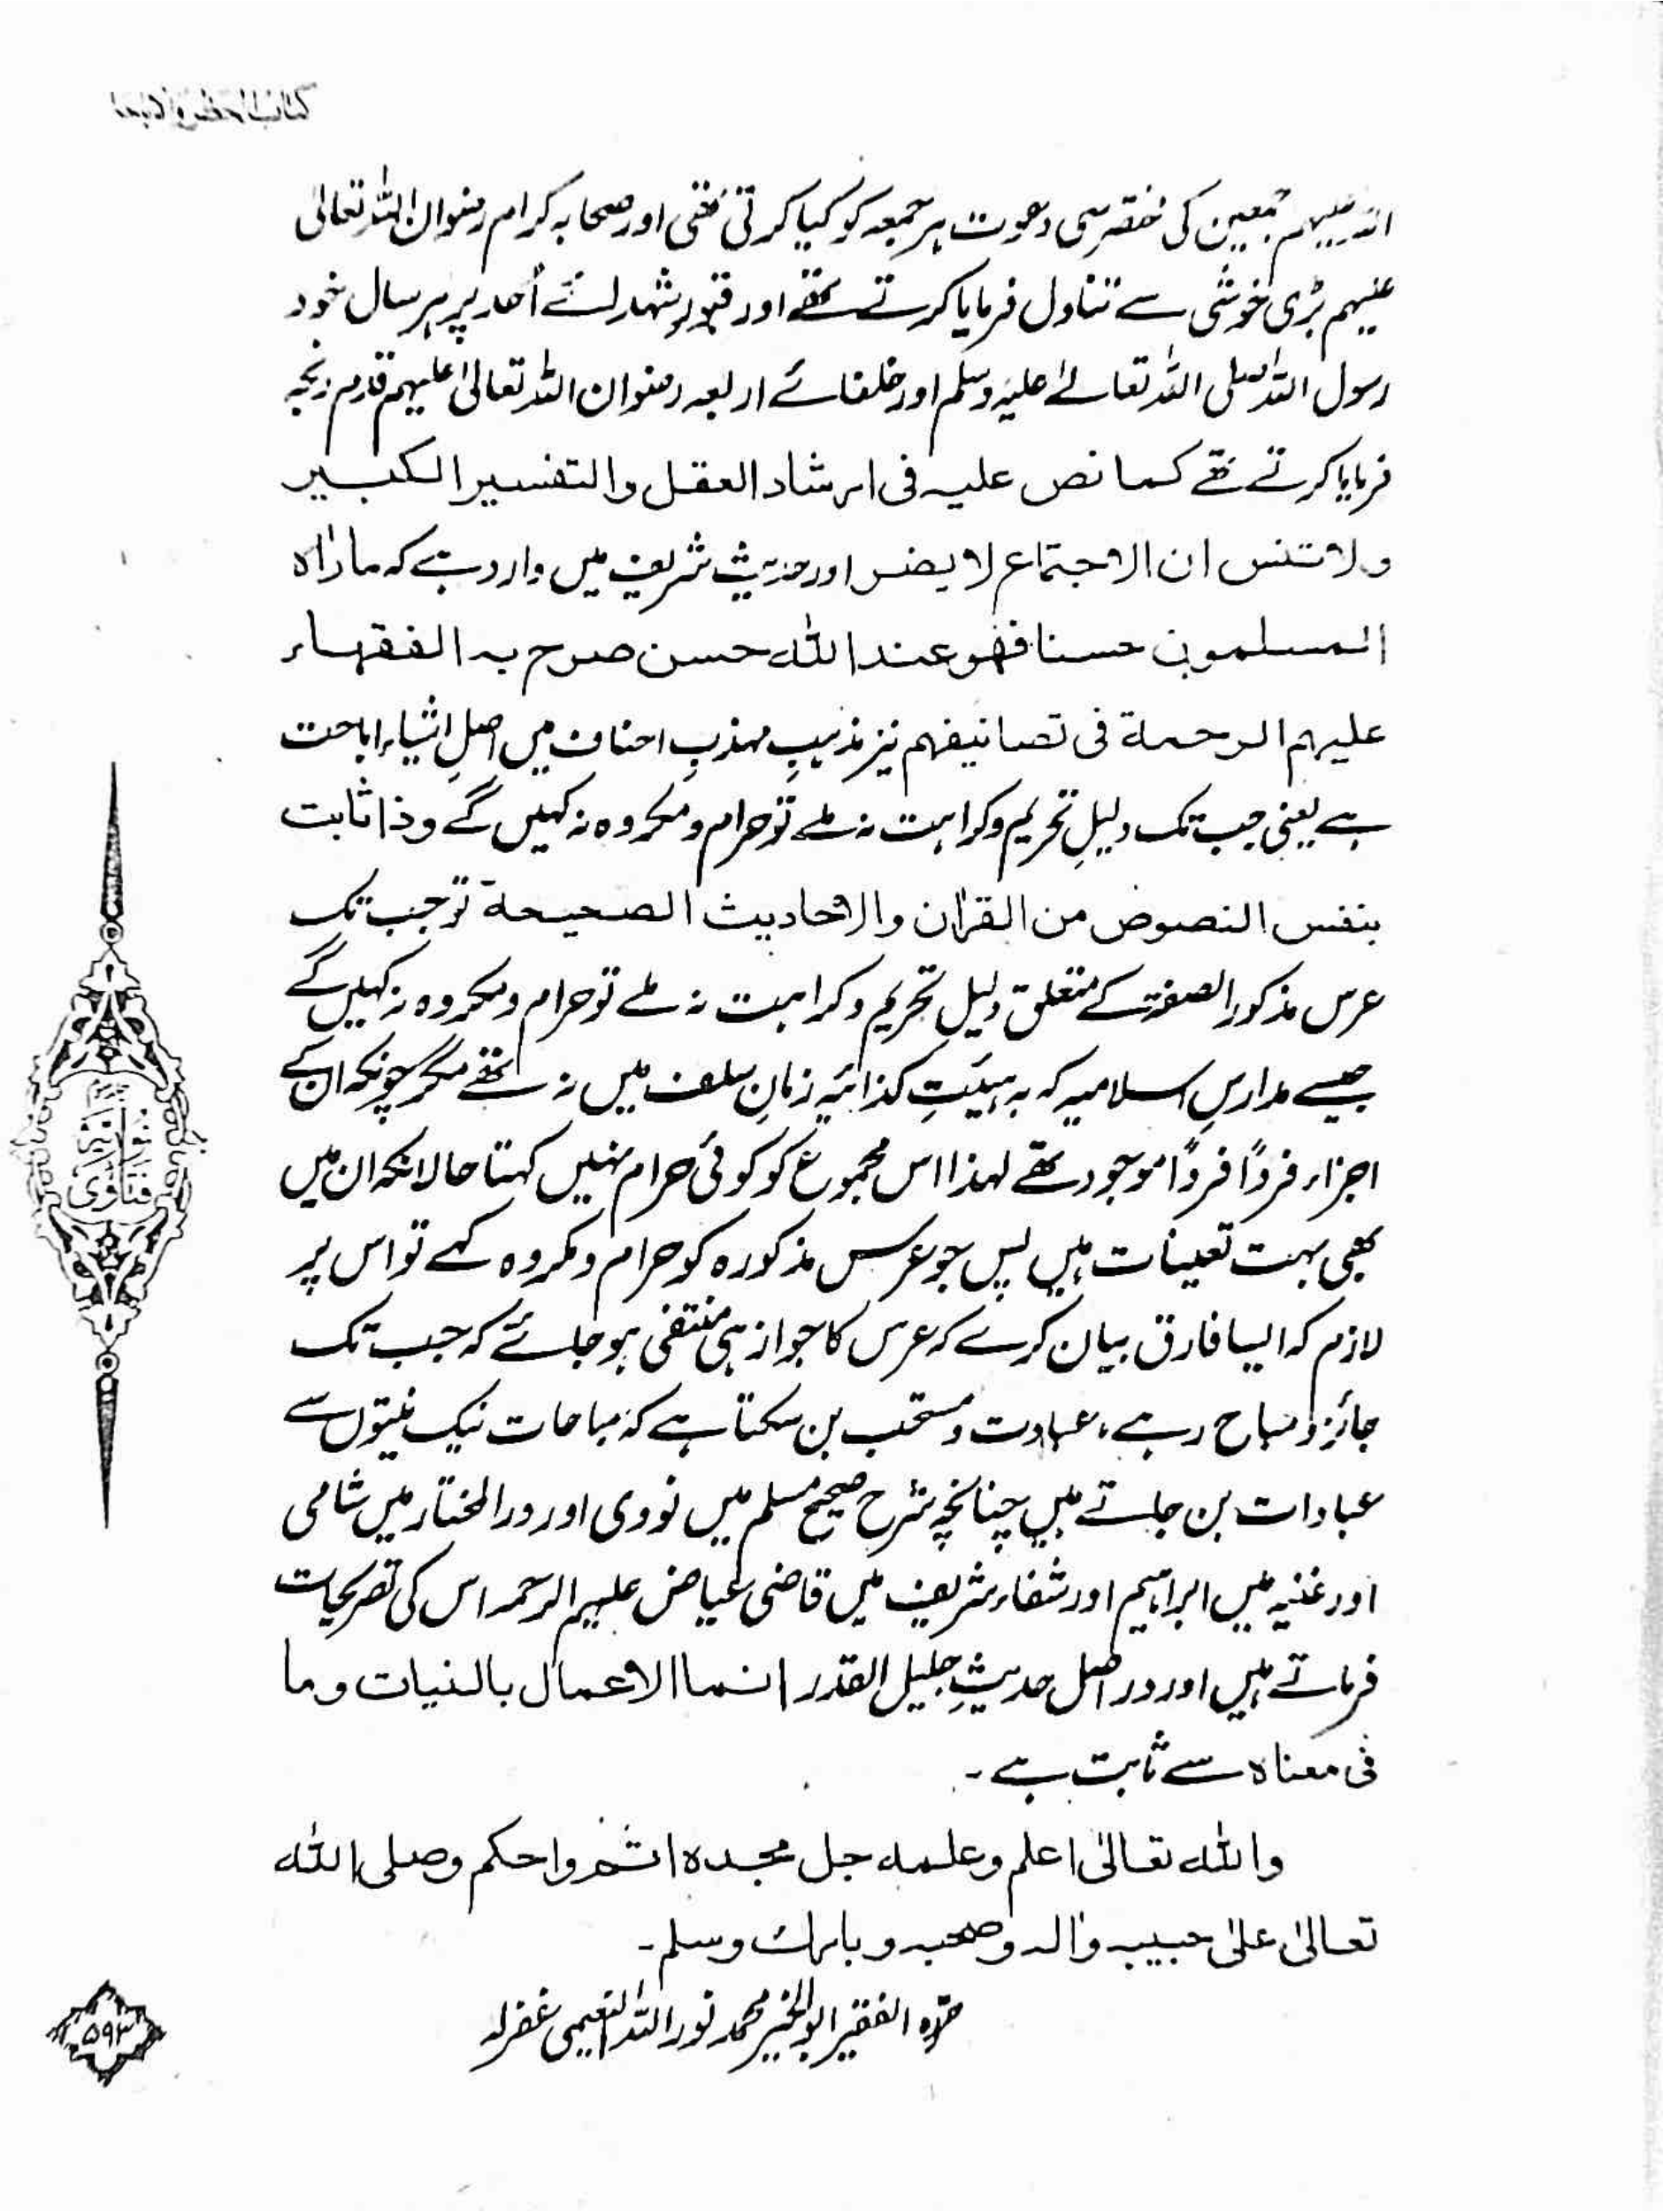 کتاب الحظر والاباحۃ
اللہ علیہم اجمعین کی مختصر سی دعوت ہر جمعہ کو کیا کرتی تھی اور صحابہ کرام رضوان اللہ تعالیٰ
علیہم بڑی خوشی سے تناول فرمایا کرتے تھے اور قبور شہدائے اُحد پر ہر سال خود
رسول اللہ صلی اللہ تعالےٰ علیہ وسلم اور خلفائے اربعہ رضوان اللہ تعالیٰ علیہم قدم رنجہ
فرمایا کرتے تھے کما نص علیہ فی ارشاد العقل والتفسیر الکبیر
ولا تنس ان الاجتماع لا یضر اور حدیث شریف میں وارد ہے کہ ما راٰہ
المسلمون حسنا فھو عند اللہ حسن صرح بہ الفقہاء
علیہم الرحمۃ فی تصانیفہم نیز مذہبِ مہذبِ احناف میں اصلِ اشیاء اباحت
ہے یعنی جب تک دلیلِ تحریم وکراہت نہ ملے تو حرام و مکروہ نہ کہیں گے وذا ثابت
بنفس النصوص من القراٰن والاحادیث الصحیحۃ تو جب تک
عرس مذکور الصفۃ کے متعلق دلیل تحریم وکراہت نہ ملے تو حرام ومکروہ نہ کہیں گے
جیسے مدارسِ اسلامیہ کہ بہ ہیئتِ کذائیہ زمانِ سلف میں نہ تھے مگر چونکہ ان کے
اجزاء فردًا فردًا موجود تھے لہذا اس مجموع کو کوئی حرام نہیں کہتا حالانکہ ان میں
بھی بہت تعینات ہیں پس جو عرس مذکورہ کو حرام ومکروہ کہے تو اس پر
لازم کہ ایسا فارق بیان کرے کہ عرس کا جواز ہی منتفی ہو جائے کہ جب تک
جائز و مباح رہے، عبادت و مستحب بن سکتا ہے کہ مباحات نیک نیتوں سے
عبادات بن جاتے ہیں چنانچہ شرح صحیح مسلم میں نووی اور درالمختار میں شامی
اور غنیہ میں ابراہیم اور شفاء شریف میں قاضی عیاض علیہم الرحمہ اس کی تصریحات
فرماتے ہیں اور در اصل حدیثِ جلیل القدر انما الاعمال بالنیات وما
فی معناہ سے ثابت ہے۔
واللہ تعالیٰ اعلم وعلمہ جل مجدہ اتم واحکم وصلی اللہ
تعالیٰ علیٰ حبیبہ واٰلہ وصحبہ وبارک وسلم۔
حرّرہ الفقیر ابوالخیر محمد نور اللہ النعیمی غفرلہ
نوریہ
فتاویٰ
۵۹۳